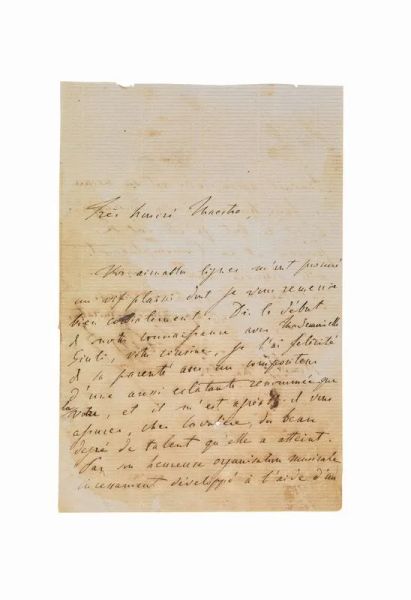 Très honoré Maestro,
Vos aimables lignes m'ont procuré
un vif plaisir dont je vous remercie
bien cordialement. Dès le début
de notre connaissance avec Mademoiselle
Giuli, votre cousine, je l'ai félicité
de sa parenté avec un compositeur
d'une aussi éclatante renommée que
la votre, et il m'est agréable de vous
assurer, cher , du beau
degré de talent qu'elle a atteint.
Par son heureuse organisation musicale
incessament développée à l'aide d'un